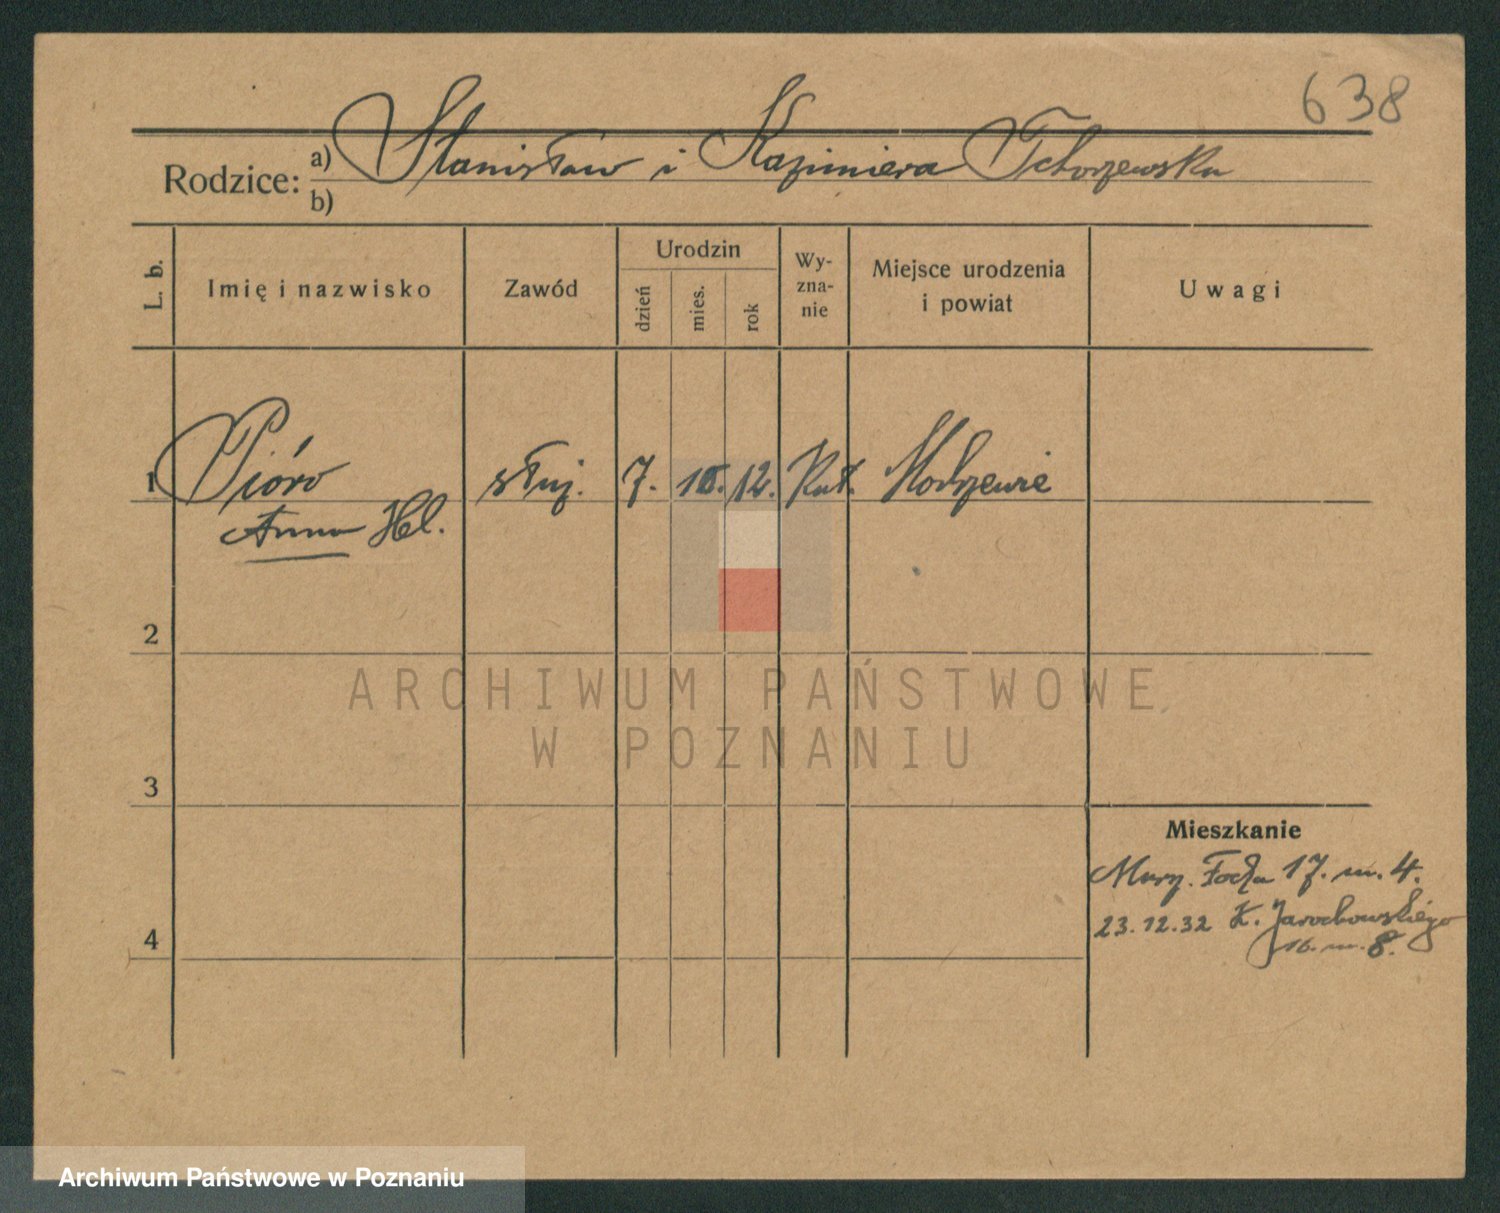 638
Rodzice: a) Stanisław i Kazimiera Tchorzewska
b)
L. b. Imię i nazwisko Zawód Urodzin dzień mies. rok Wyznanie Miejsce urodzenia i powiat Uwagi
1 Pióro służ. 7. 10. 12. Kat. Modrzewie
Anna
2
ARCHIWUM PAŃSTWOWE
W POZNANIU
3
Mieszkanie
Focha 17. m. 4.
4 23.12.32 K. Jarochowskiego
16. m. 8.
Archiwum Państwowe w Poznaniu